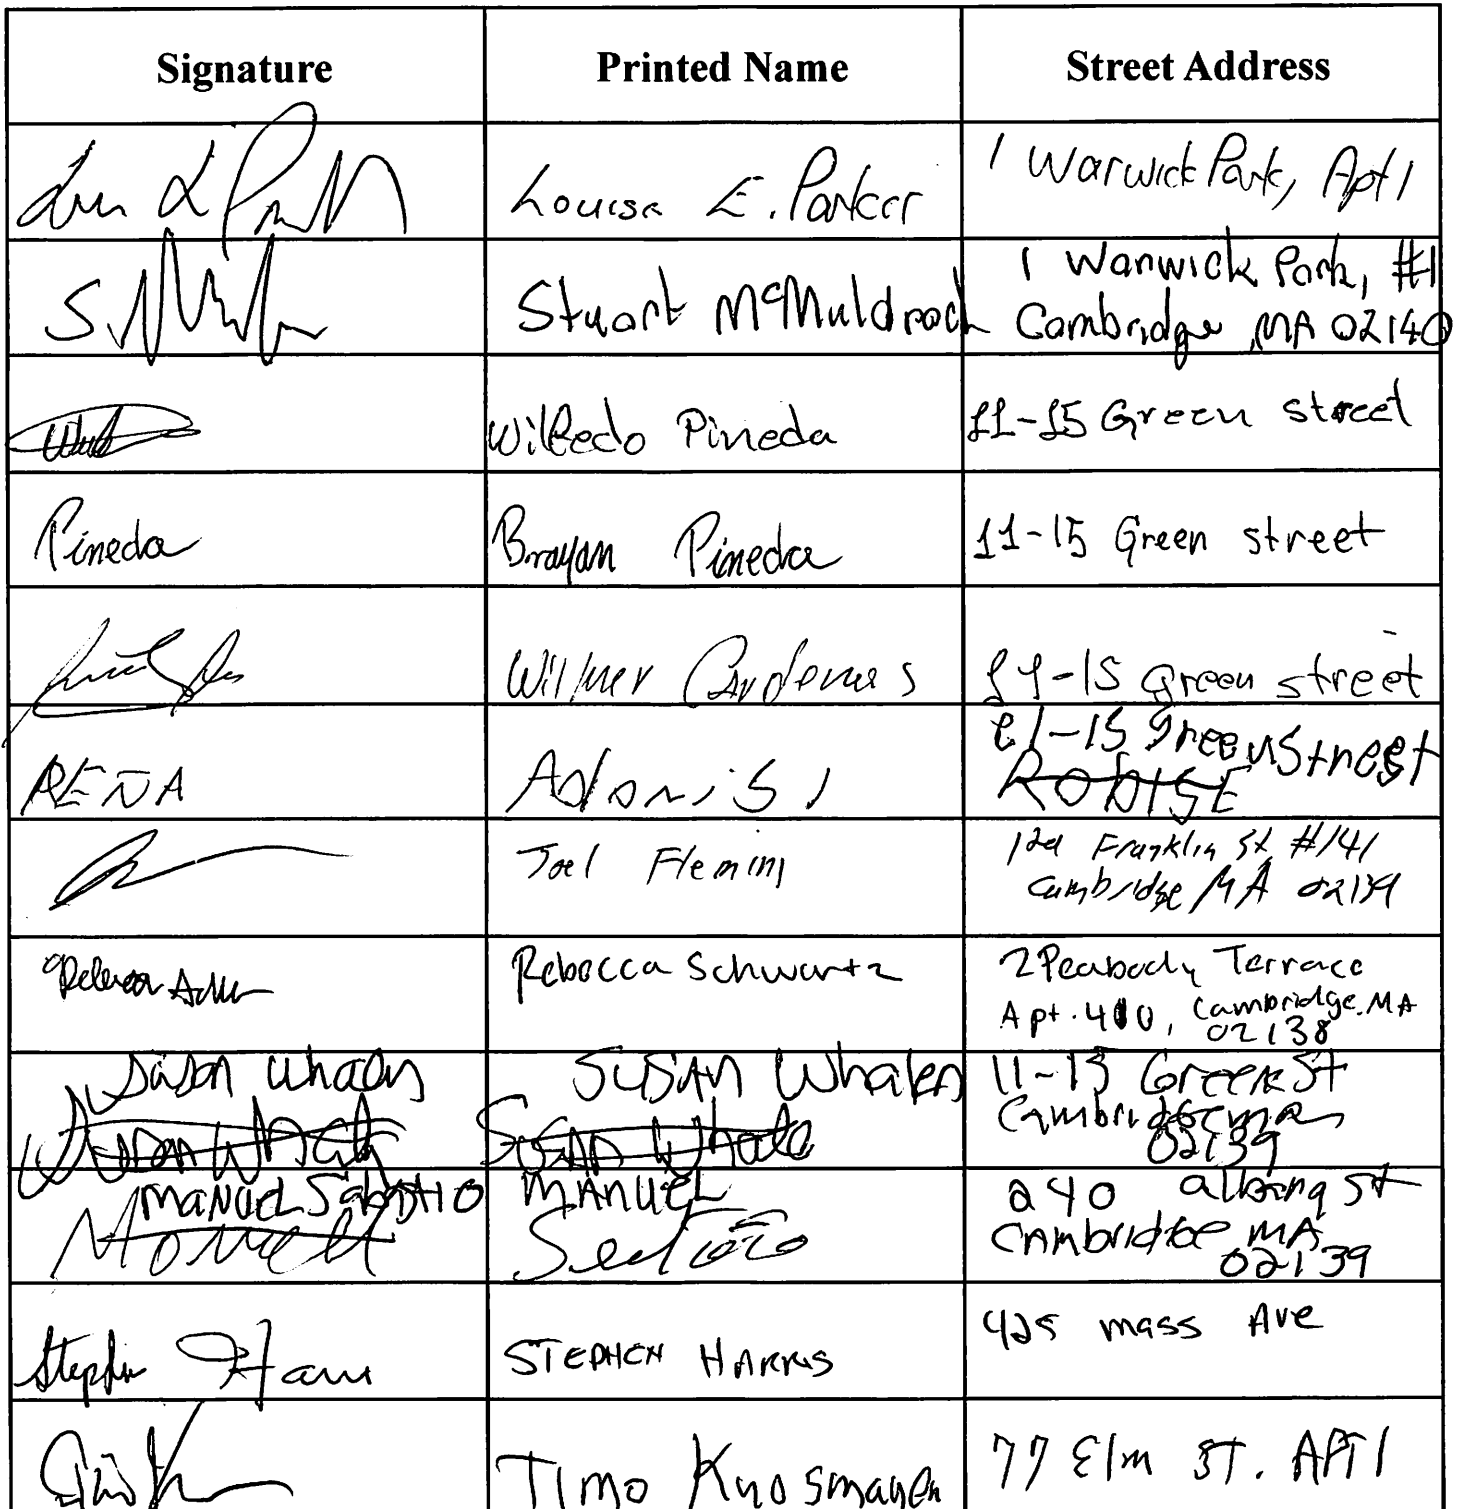 Signature Printed Name Street Address
Louisa E. Parker 1 Warwick Park, Apt 1
Stuart McMuldroch 1 Warwick Park, #1
Cambridge, MA 02140
Wilfredo Pineda 11-15 Green street
Pineda Brayan Pineda 11-15 Green street
Wilmer Cardenas 11-15 Green street
11-15 Green Street
PEÑA Adonis
Joel Fleming #141
Cambridge MA 02139
Rebecca Schwartz 2 Peabody Terrace
Apt. 410, Cambridge, MA
02138
Susan Whalen SUSAN Whalen 11-15 Green St
Cambridge ma
02139
MANUEL MANUEL 240 albany St
Cambridge MA
02139
Stephen Harris STEPHEN HARRIS 425 mass Ave
Timo 77 Elm ST. APT 1